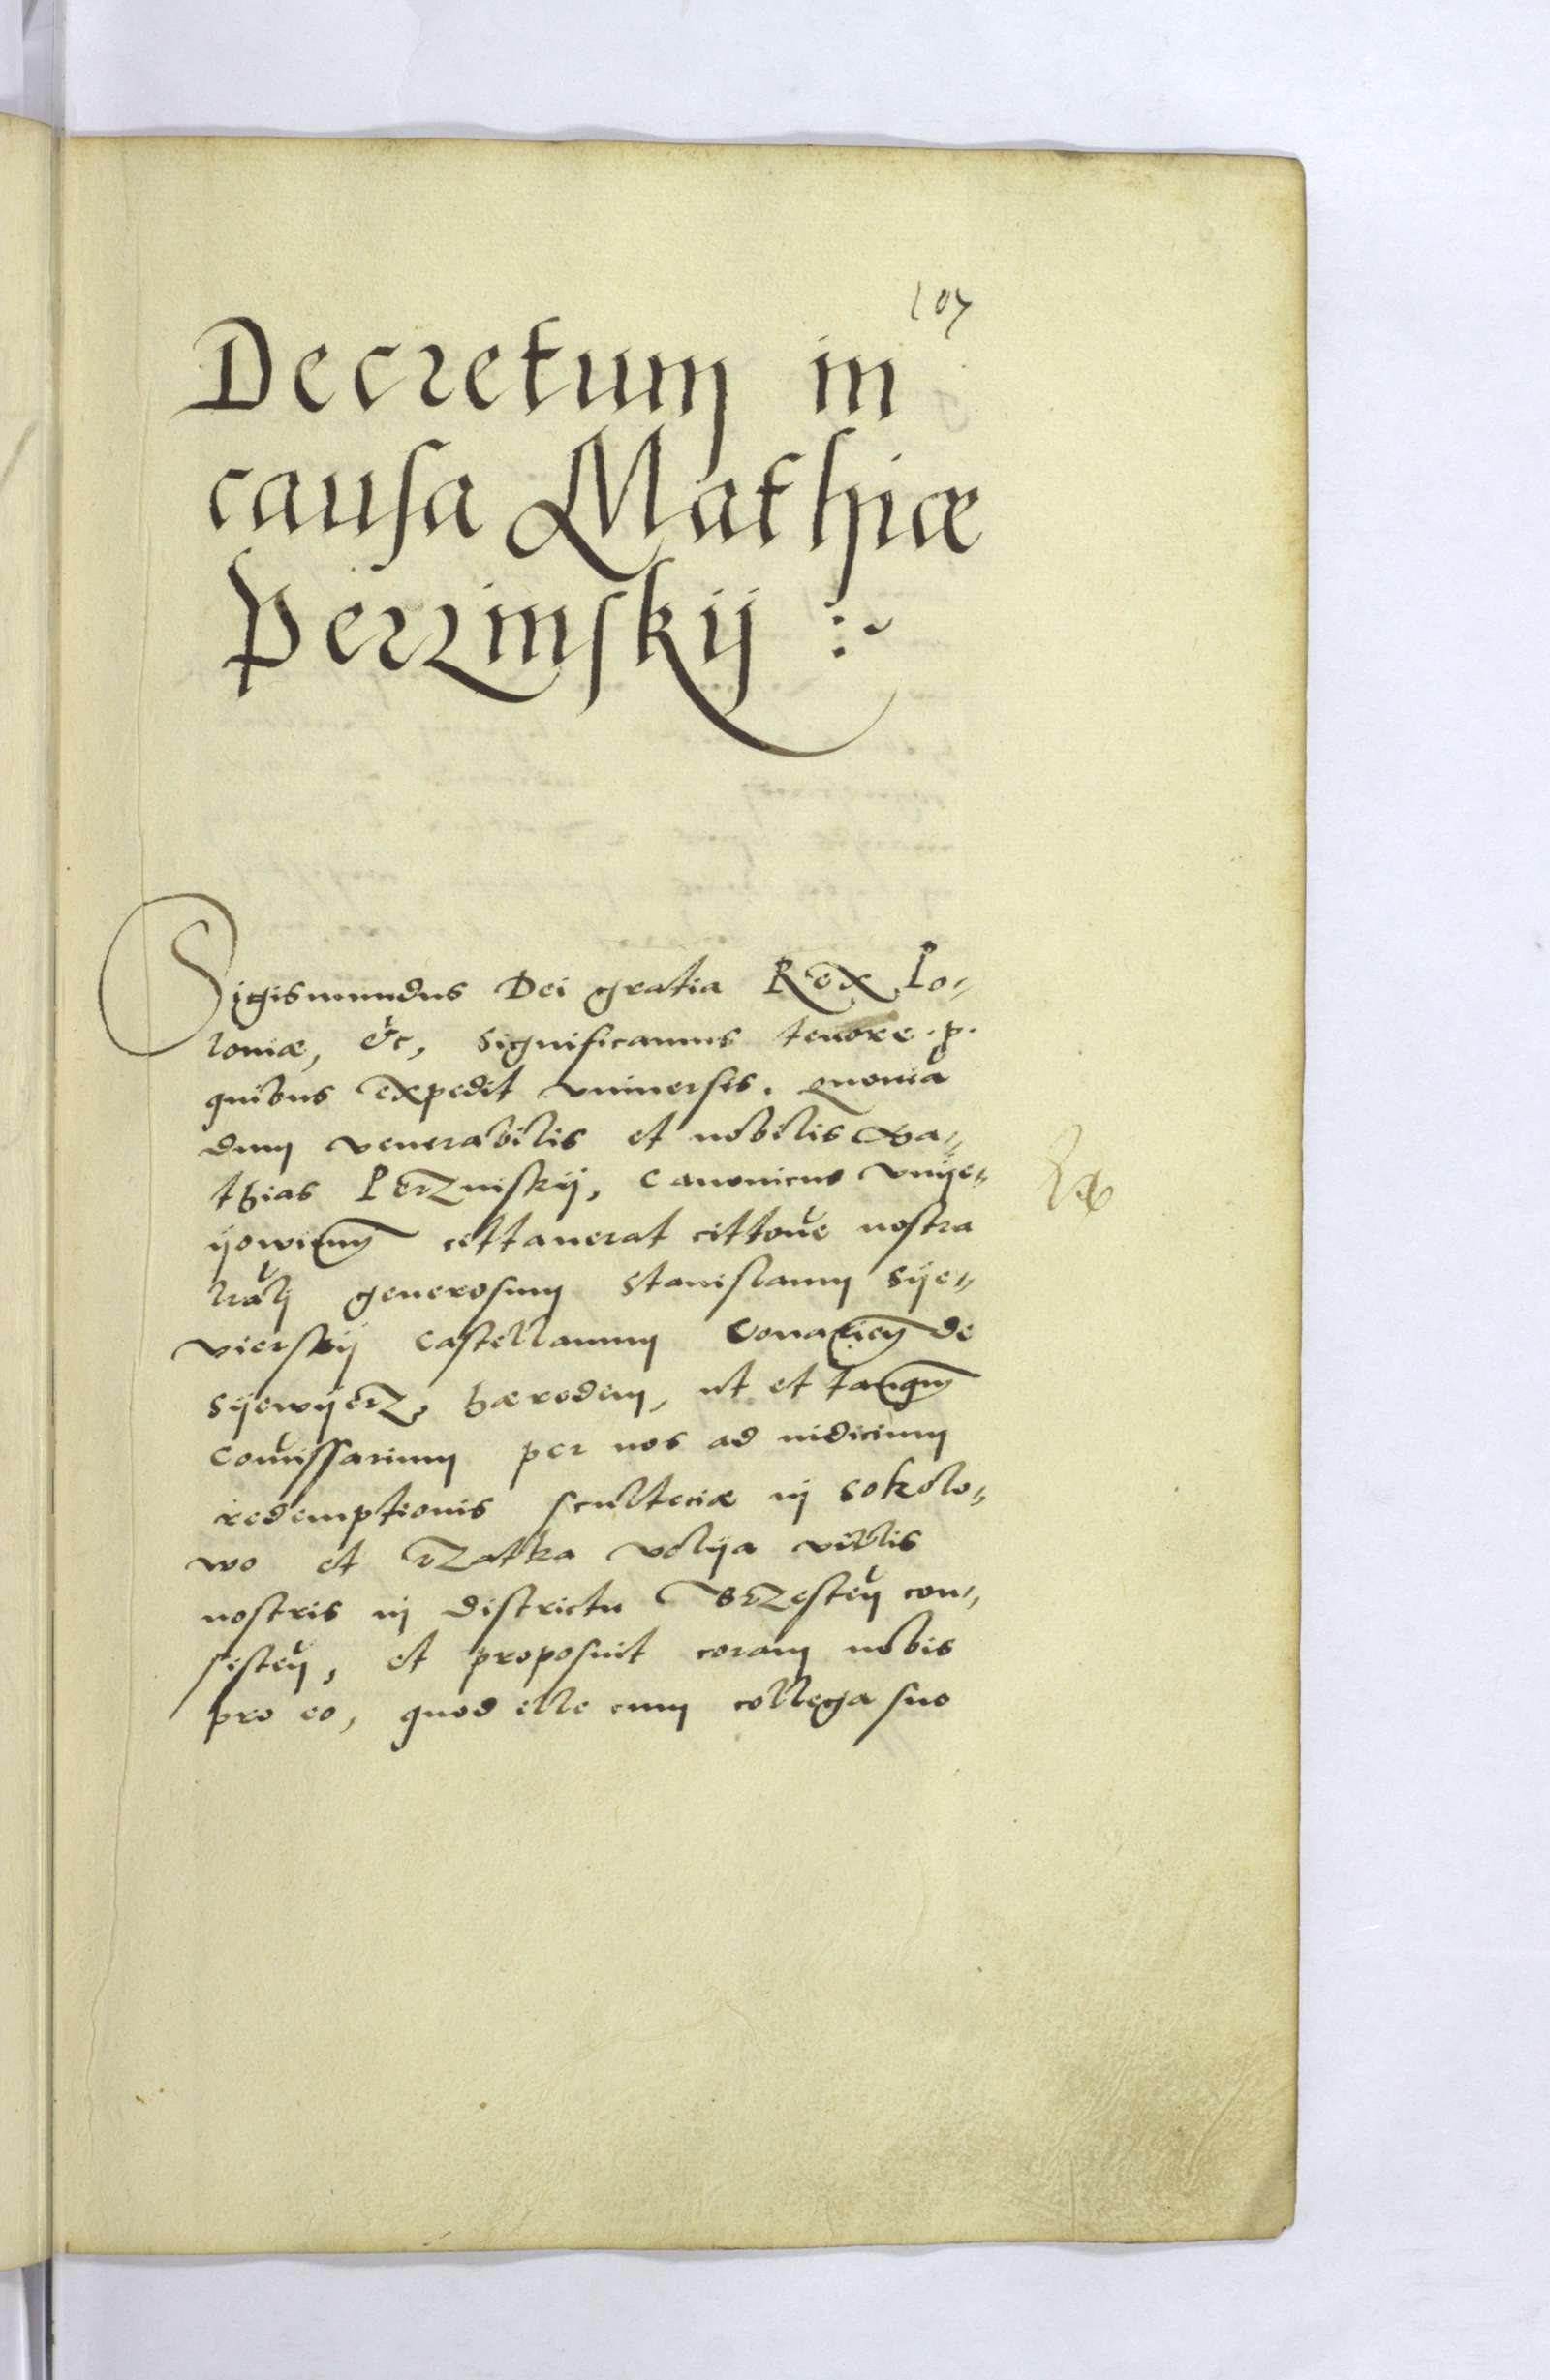 107
Decretum in
causa Mathiæ
Perzinskij :~
Sigismundus Dei gratia Rex Po-
loniæ, &c, significamus tenore .p.
quibus expedit vniuersis. quoniā
dum venerabilis et nobilis Ma-
thias Perzinskij, Canonicus vnije-
ijowieng̃ cittauerat cittoūe nostra
lrālj generosum Stanislaum Sije-
vierskij Castellanum Conarien̄ de
Sijewijerz, hæredem, ut et tanqm̃
Com̄issarium per nos ad iudicium
redemptionis scultetiæ in Sokolo-
wo et Rzatka volija villis
nostris in districtu Brzesteñ con-
sisteñ, et proposuit coram nobis
pro eo, quod ille cum collega suo